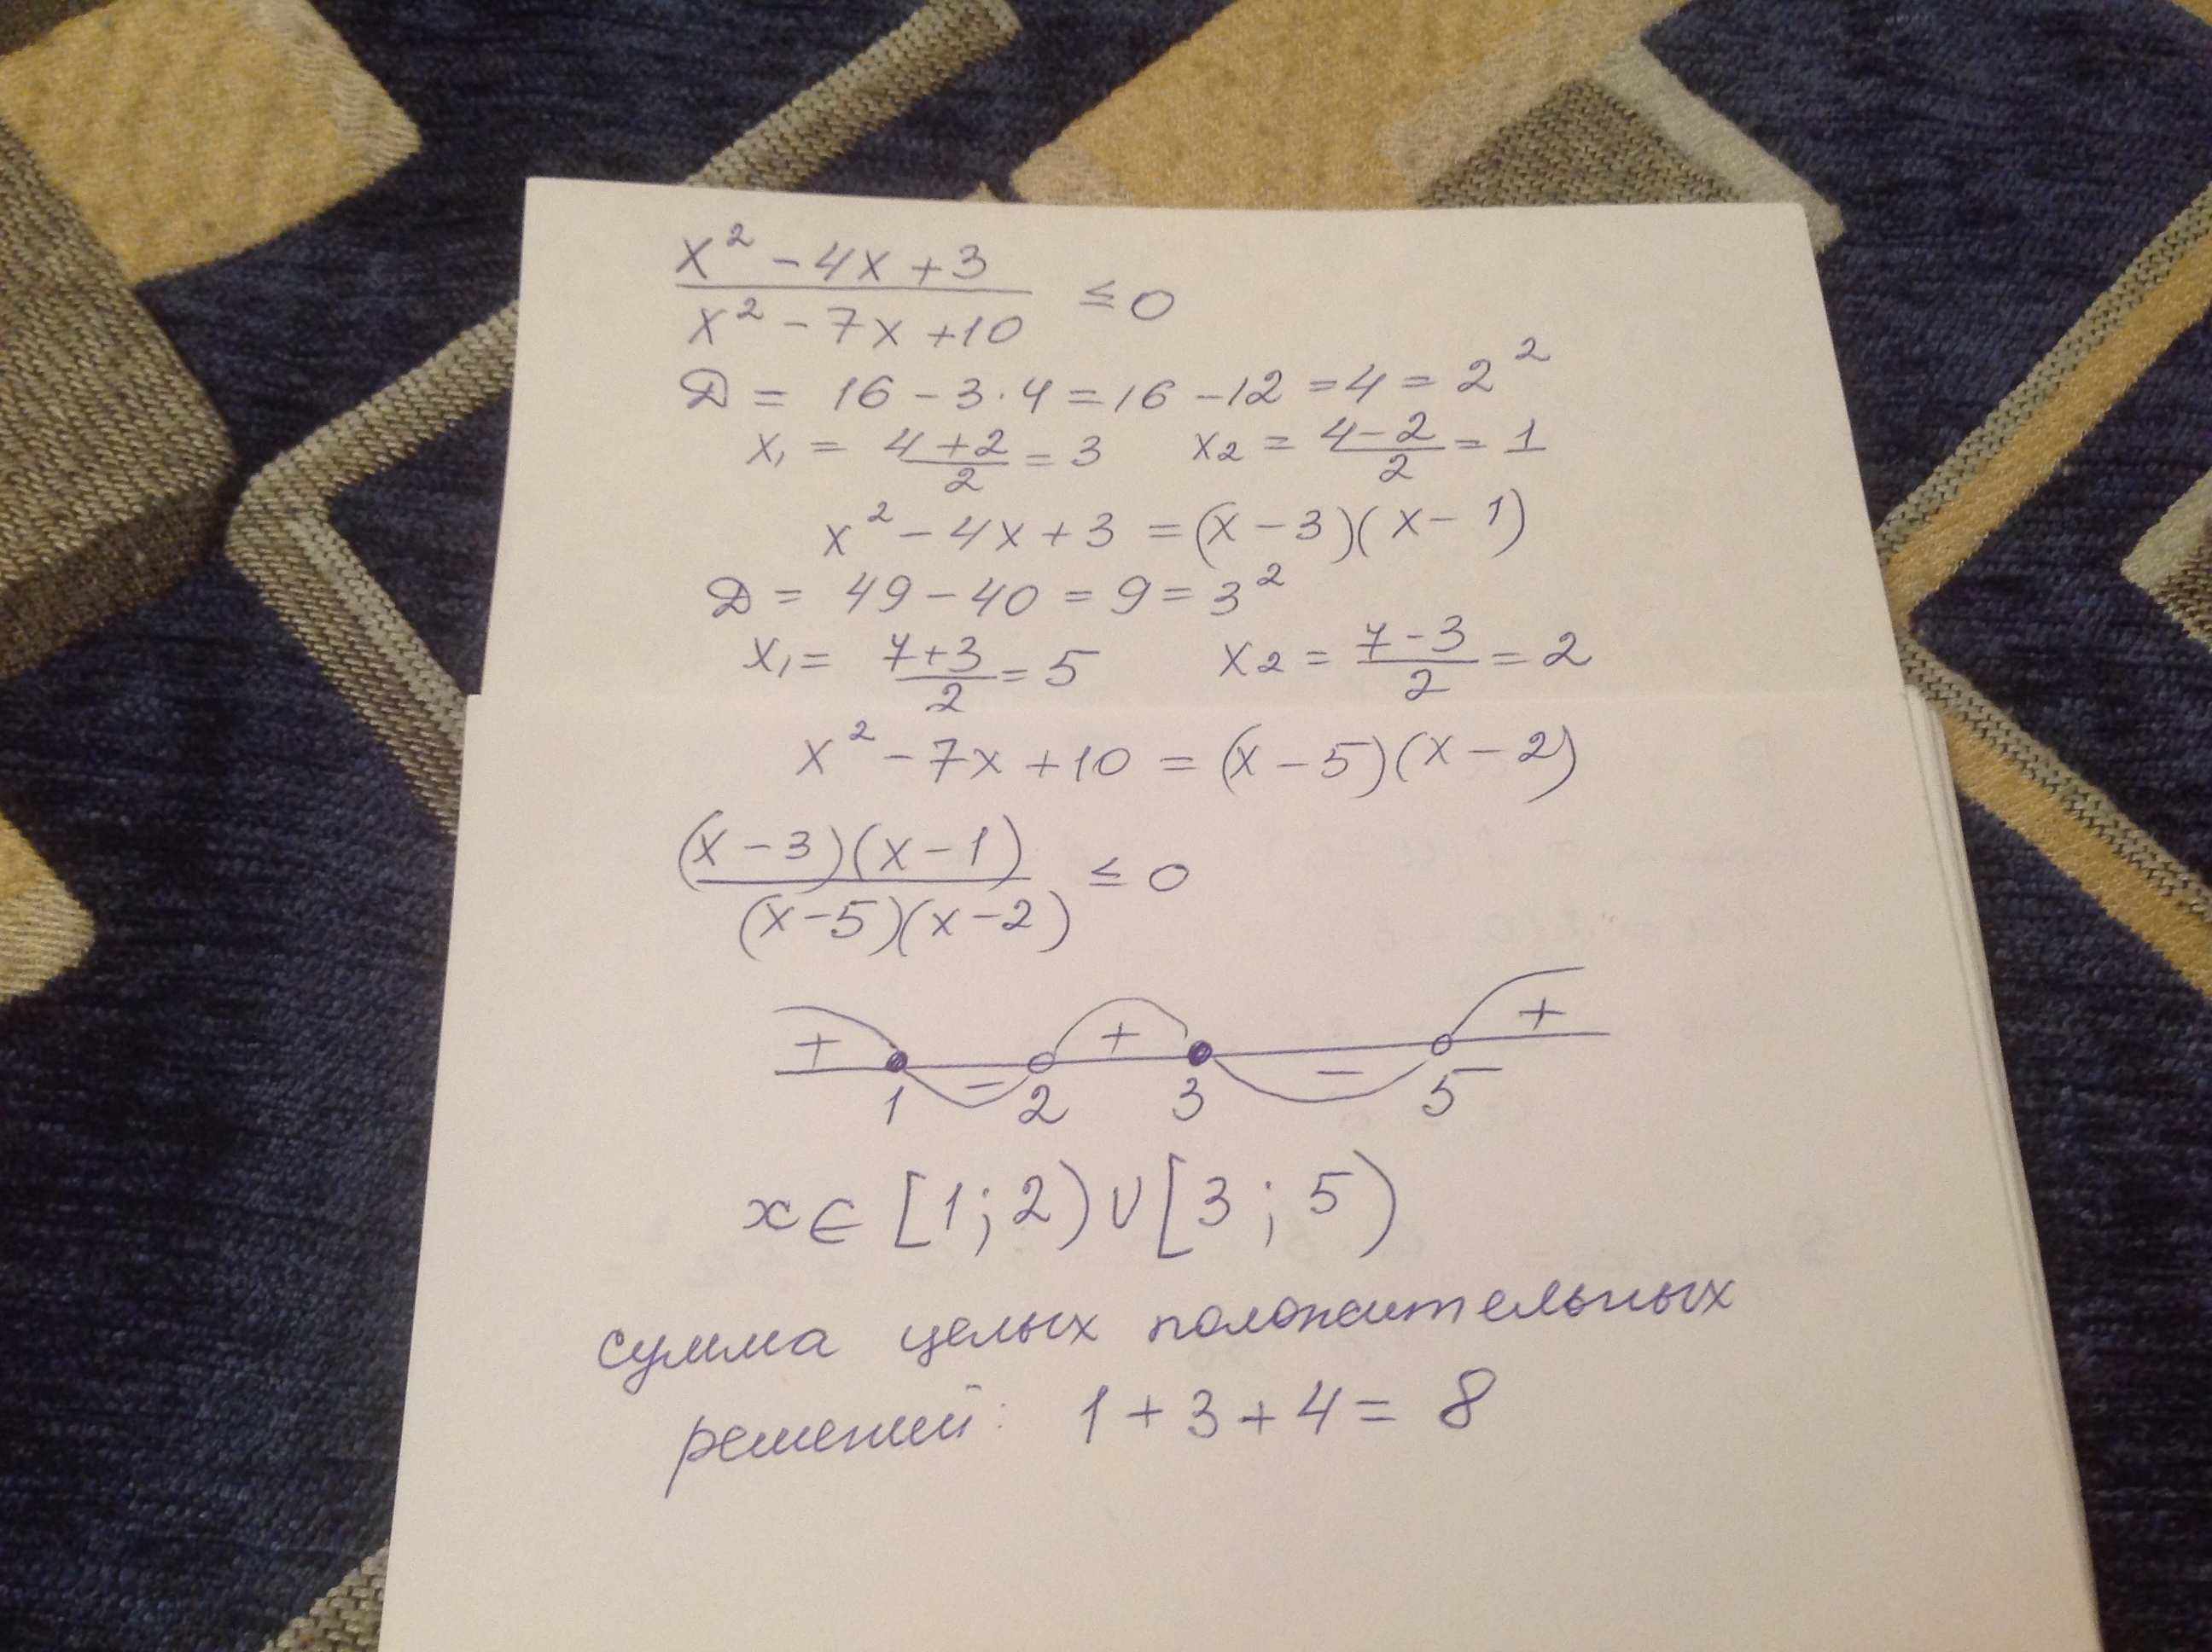 x² - 4x + 3
x² - 7x + 10 ≤ 0
D = 16 - 3·4 = 16 - 12 = 4 = 2²
x₁ = 4+2/2 = 3 x₂ = 4-2/2 = 1
x² - 4x + 3 = (x - 3)(x - 1)
D = 49 - 40 = 9 = 3²
x₁ = 7+3/2 = 5 x₂ = 7-3/2 = 2
x² - 7x + 10 = (x - 5)(x - 2)
(x - 3)(x - 1)
(x - 5)(x - 2) ≤ 0
+ - + - +
1 2 3 5
x ∈ [1; 2) ∪ [3; 5)
сумма целых положительных
решений: 1 + 3 + 4 = 8